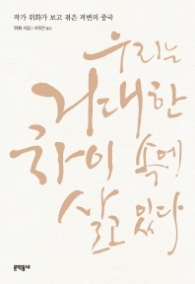 작가 위화가 보고 겪은 격변의 중국
우리는
위화 지음 | 이욱연 옮김
거대한
차이 속에
살고 있다
문학동네